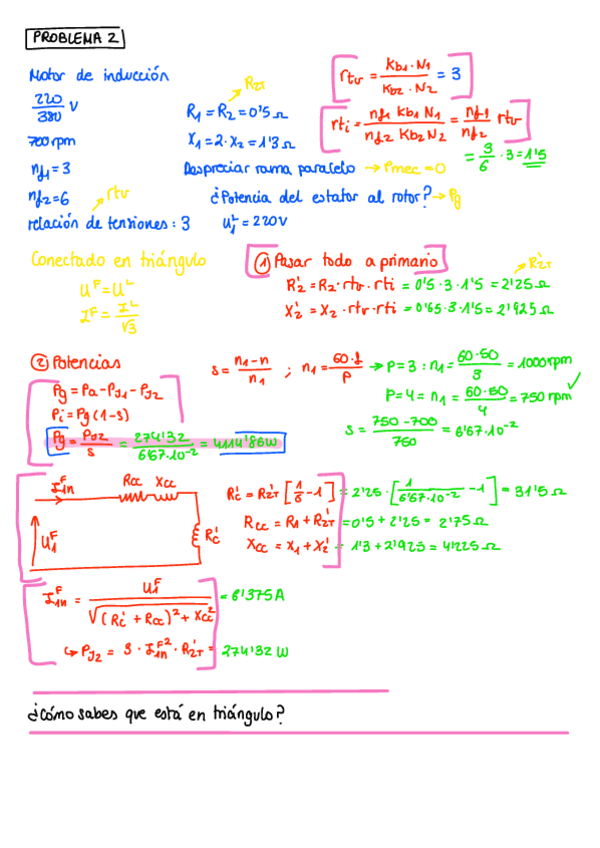 PROBLEMA 2
Motor de inducción
220/380 V
700 rpm
nf1 = 3
nf2 = 6
rtv
relación de tensiones: 3
R2T
R1 = R2 = 0'5 Ω
X1 = 2·X2 = 1'3 Ω
Despreciar rama paralelo → Pmec = 0
¿Potencia del estator al rotor? → Pg
U1^L = 220V
rtv = (Kb1·N1)/(Kb2·N2) = 3
rti = (nf1 Kb1 N1)/(nf2 Kb2 N2) = (nf1/nf2) rtv
= 3/6 · 3 = 1'5
Conectado en triángulo
U^F = U^L
I^F = I^L/√3
① Pasar todo a primario
R'2T
R2' = R2·rtv·rti = 0'5·3·1'5 = 2'25 Ω
X2' = X2·rtv·rti = 0'65·3·1'5 = 2'925 Ω
② Potencias
s = (n1-n)/n1 ; n1 = 60·f/P → P=3 : n1 = 60·50/3 = 1000 rpm
P=4 = n1 = 60·50/4 = 750 rpm ✓
s = (750-700)/750 = 6'67·10^-2
Pg = Pa - PJ1 - PJ2
Pi = Pg(1-s)
Pg = PJ2/s = 274'32/(6'67·10^-2) = 4114'86W
I1n^F Rcc Xcc
U1^F
Rc'
Rc' = R2T' [1/s - 1] = 2'25·[1/(6'67·10^-2) - 1] = 31'5 Ω
Rcc = R1 + R2T' = 0'5 + 2'25 = 2'75 Ω
Xcc = X1 + X2' = 1'3 + 2'925 = 4'225 Ω
I1n^F = U1^F/√((Rc' + Rcc)² + Xcc²) = 6'375 A
↳ PJ2 = 3·I1n^F²·R2T' = 274'32 W
¿Cómo sabes que está en triángulo?